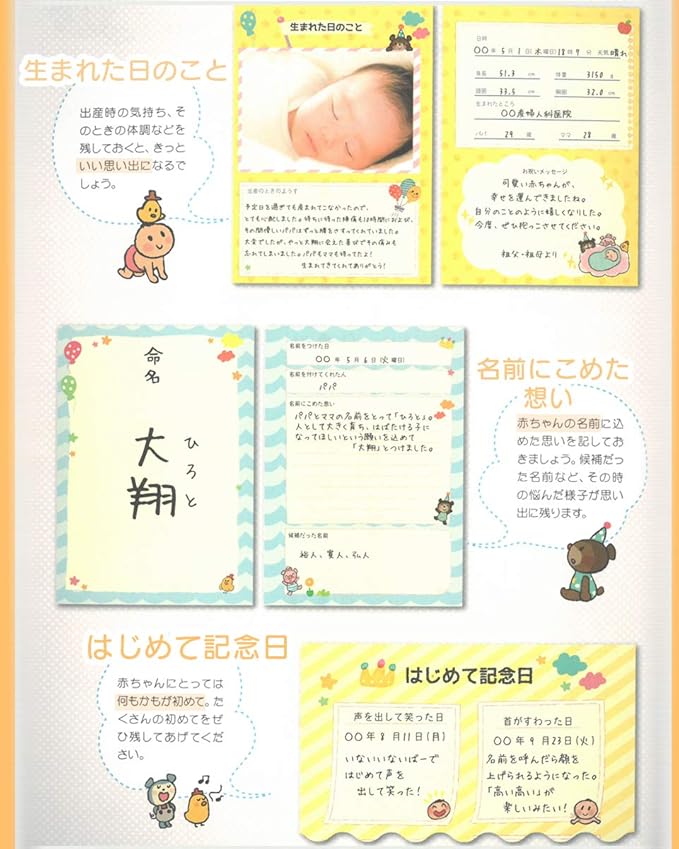 生まれた日のこと
出産時の気持ち、そ
のときの体調などを
残しておくと、きっと
いい思い出になるで
しょう。
生まれた日のこと
出産のときのようす
予定日を過ぎても産まれてこなかったので、
とても心配しました。待ちに待った陣痛もは時間におよび、
その間優しいパパはずっと腰をさすってくれていました。
大変でしたが、やっと大翔に会えた喜びでその痛みも
忘れてしまいました。パパもママも待ってたよ!
生まれてきてくれてありがとう!
日時
○○年5月1日(木曜日)18時9分 天気晴れ
身長 51.3 cm 体重 3150 g
頭囲 33.5 cm 胸囲 32.0 cm
生まれたところ
○○産婦人科医院
パパ 29 歳 ママ 28 歳
お祝いメッセージ
可愛い赤ちゃんが、
幸せを運んできましたね。
自分のことのように嬉しくなりました。
今度、ぜひ抱っこさせてください。
祖父・祖母より
命名
大翔
ひろと
名前をつけた日
○○年5月6日(火曜日)
名前を付けてくれた人
パパ
名前にこめた思い
パパとママの名前をとって「ひろと」。
人として大きく育ち、はばたける子に
なってほしいという願いを込めて
「大翔」とつけました。
候補だった名前
裕人、寛人、弘人
名前にこめた
想い
赤ちゃんの名前に込
めた思いを記してお
きましょう。候補だっ
た名前など、その時
の悩んだ様子が思い
出に残ります。
はじめて記念日
赤ちゃんにとっては
何もかもが初めて。た
くさんの初めてをぜ
ひ残してあげてくだ
さい。
はじめて記念日
声を出して笑った日
○○年8月11日(月)
いないいないばーで
はじめて声を
出して笑った!
首がすわった日
○○年9月23日(火)
名前を呼んだら顔を
上げられるようになった。
「高い高い」が
楽しいみたい!